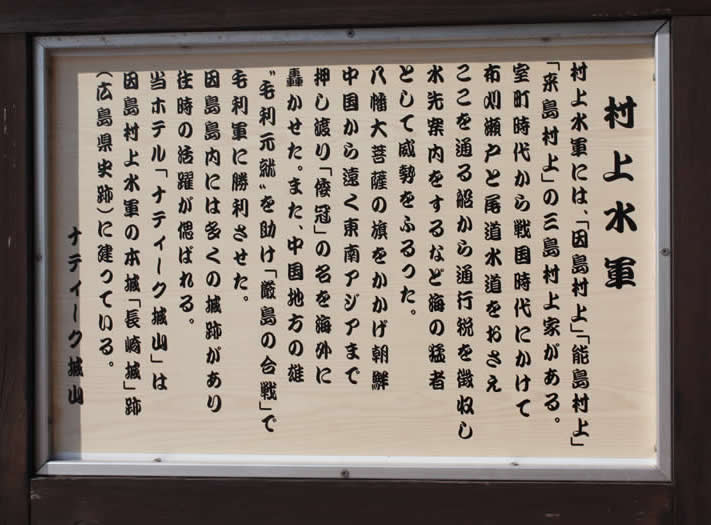 村上水軍
村上水軍には、「因島村上」「能島村上」
「来島村上」の三島村上家がある。
室町時代から戦国時代にかけて
布刈瀬戸と尾道水道をおさえ
ここを通る船から通行税を徴収し
水先案内をするなど海の猛者
として威勢をふるった。
八幡大菩薩の旗をかかげ朝鮮
中国から遠く東南アジアまで
押し渡り「倭冠」の名を海外に
轟かせた。また、中国地方の雄
〝毛利元就〟を助け「厳島の合戦」で
毛利軍に勝利させた。
因島島内には多くの城跡があり
往時の活躍が偲ばれる。
当ホテル「ナティーク城山」は
因島村上水軍の本城「長崎城」跡
（広島県史跡）に建っている。
ナティーク城山